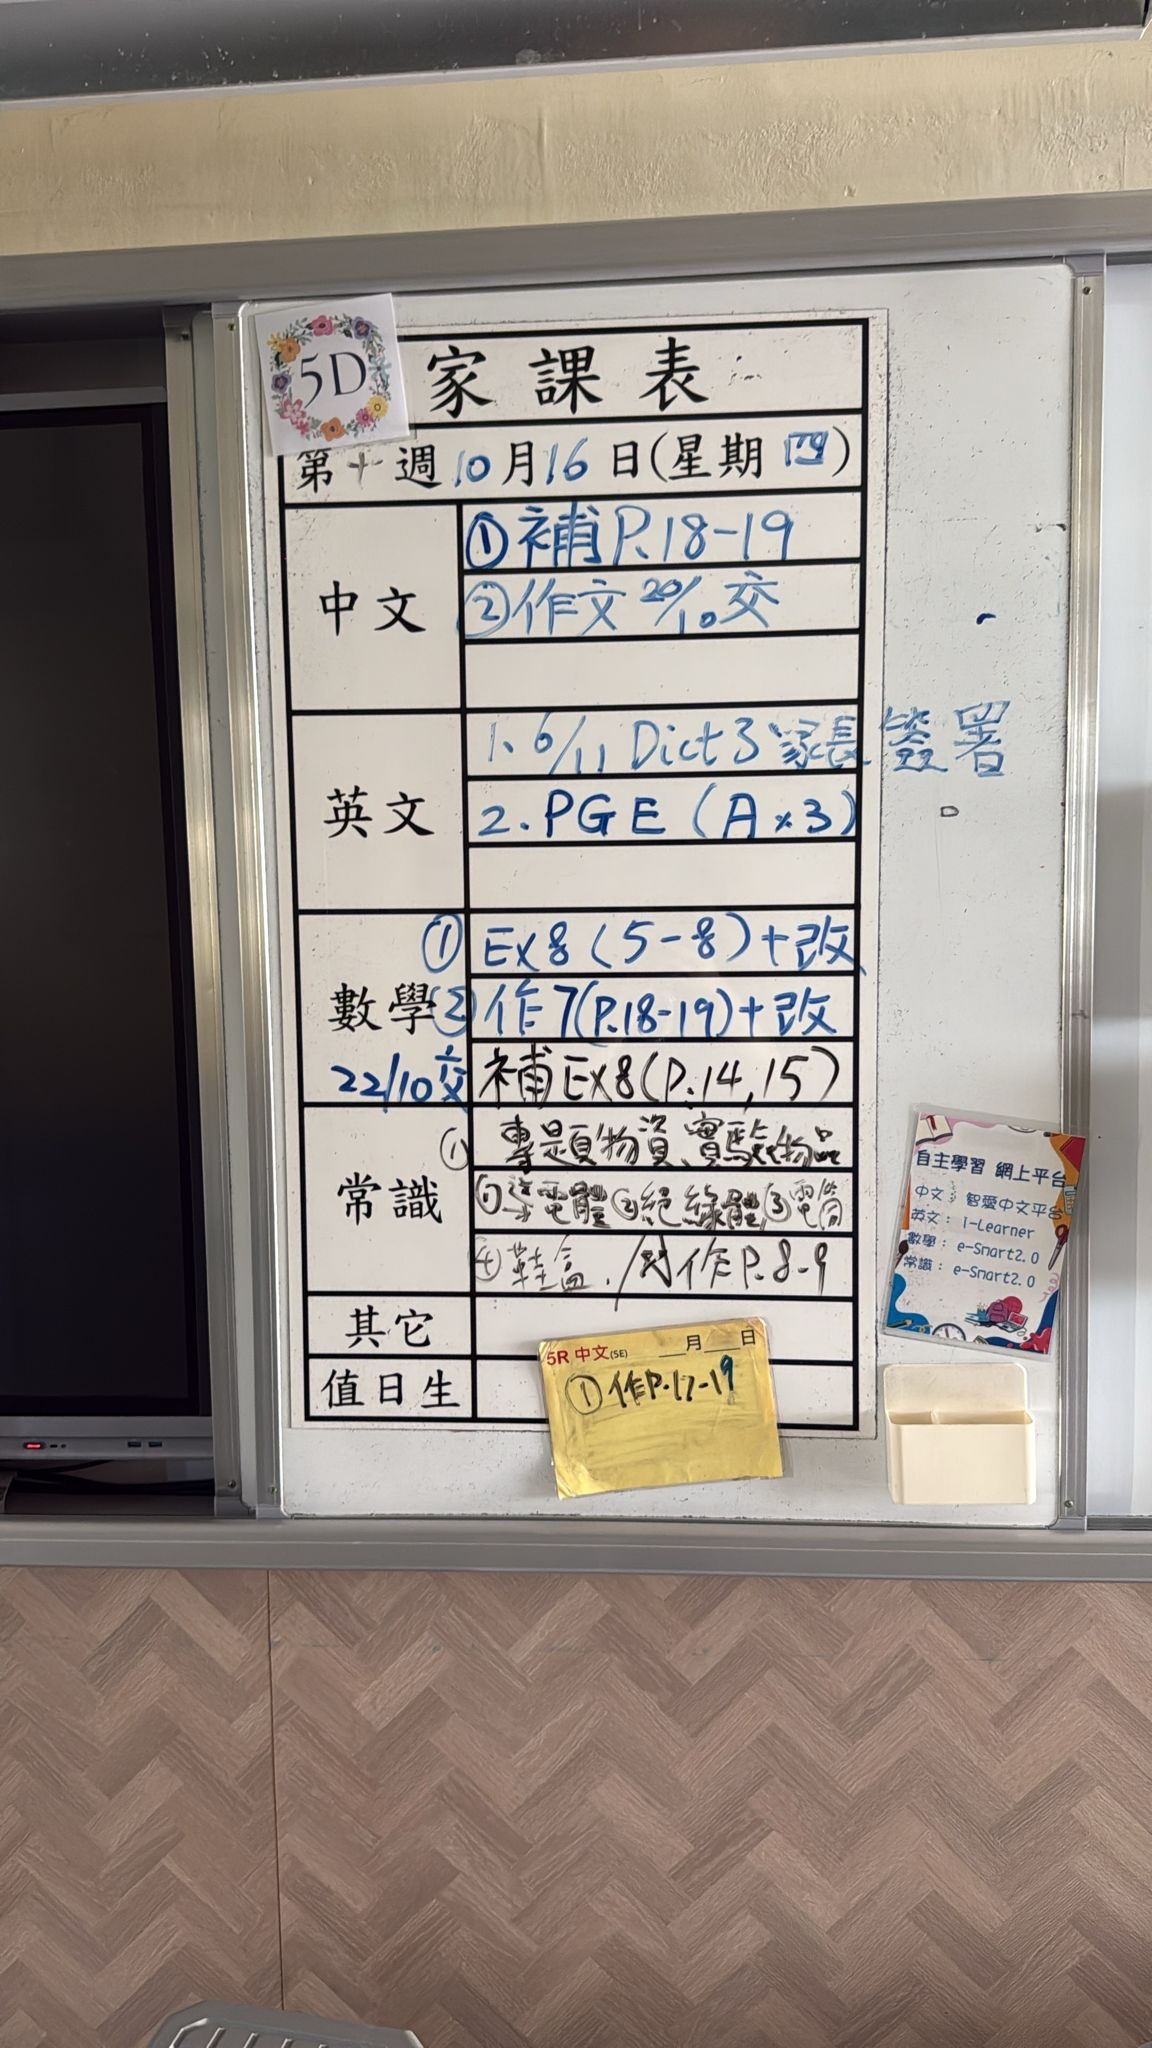 5D
家課表
第十週10月16日(星期四)
中文
①補P.18-19
②作文20/10交
英文
1. 6/11 Dict 3 家長簽署
2. PGE (A×3)
數學
① Ex 8 (5-8)+改
② 作7(P.18-19)+改
22/10交
補Ex8(P.14,15)
常識
① 專題物資、實驗物品
①導電體②絕緣體③電筒
④鞋盒. 作P.8-9
其它
值日生
5R 中文(5E) ___月___日
①作P.17-19
自主學習 網上平台
中文: 智愛中文平台
英文: i-Learner
數學: e-Smart2.0
常識: e-Smart2.0